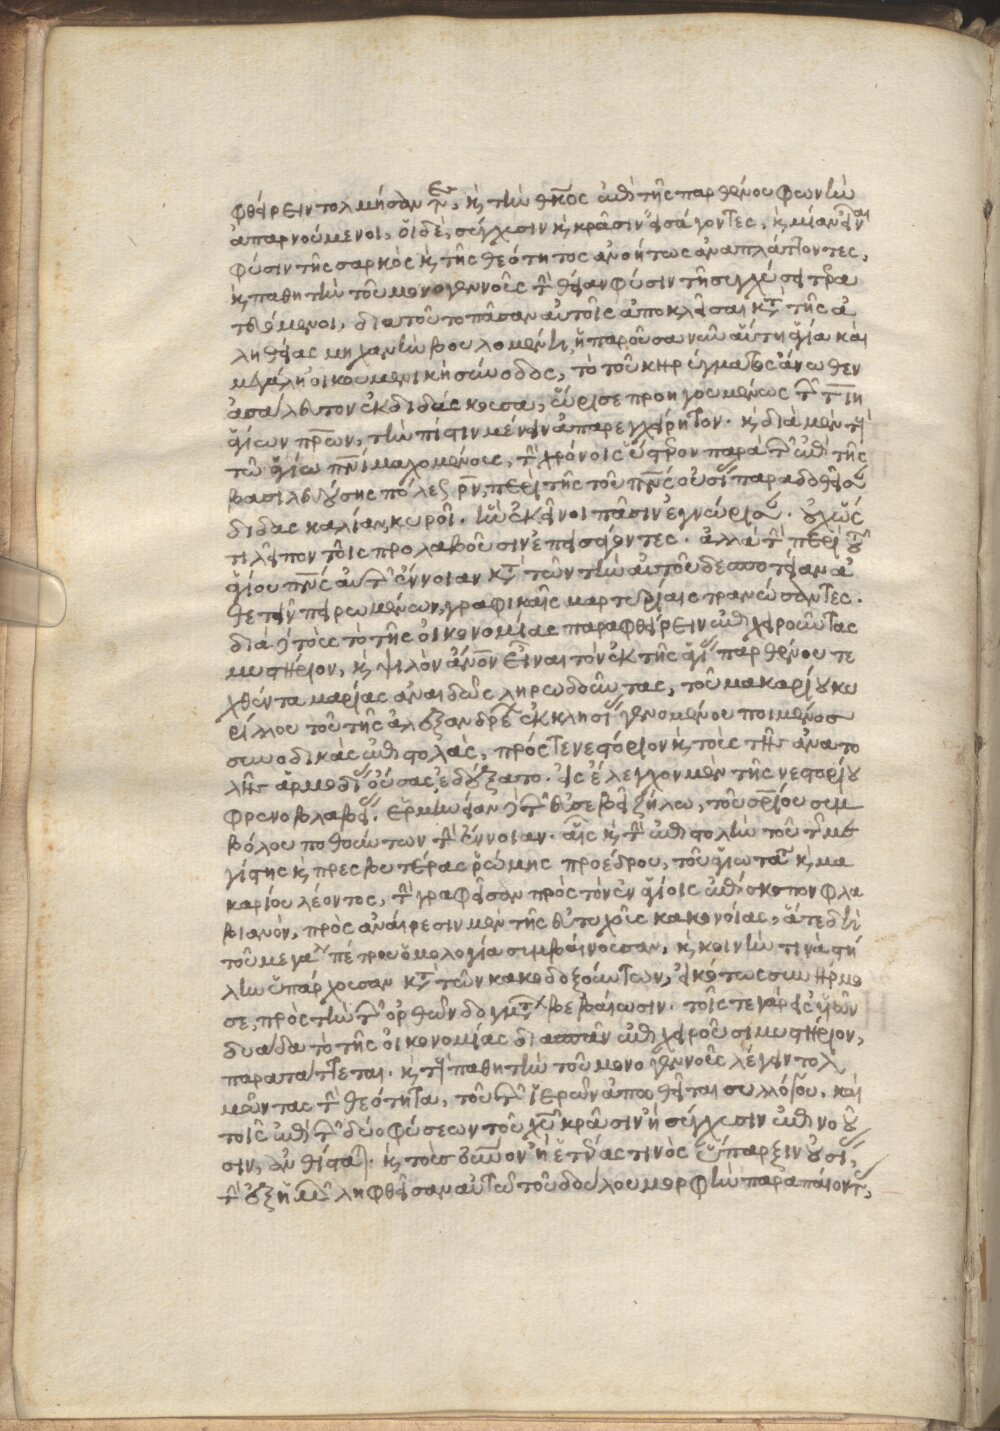 φθείρειν τολμήσαντες, καὶ τὴν θεοτόκος ἐπὶ τῆς παρθένου φωνὴν
ἀπαρνούμενοι, οἱ δὲ, σύγχυσιν καὶ κρᾶσιν εἰσάγοντες, καὶ μίαν εἶναι
φύσιν τῆς σαρκὸς καὶ τῆς θεότητος ἀνοήτως ἀναπλάττοντες,
καὶ παθητὴν τοῦ μονογενοῦς τὴν θείαν φύσιν τῇ συγχύσει τερα
τευόμενοι, διὰ τοῦτο πᾶσαν αὐτοῖς ἀποκλεῖσαι κατὰ τῆς ἀ
ληθείας μηχανὴν βουλομένη, ἡ παροῦσα νῦν αὕτη ἁγία καὶ
μεγάλη οἰκουμενικὴ σύνοδος, τὸ τοῦ κηρύγματος ἄνωθεν
ἀσάλευτον ἐκδιδάσκουσα, ὥρισε προηγουμένως τῶν τιη
ἁγίων πατέρων, τὴν πίστιν μένειν ἀπαρεγχείρητον. καὶ διὰ μὲν τοὺς
τῷ ἁγίῳ πνεύματι μαχομένους, τὴν χρόνοις ὕστερον παρὰ τῶν ἐπὶ τῆς
βασιλευούσης πόλεως ρν, περὶ τῆς τοῦ πνεύματος οὐσίας παραδοθεῖσαν
διδασκαλίαν, κυροῖ. ἣν ἐκεῖνοι πᾶσιν ἐγνώρισαν. οὐχ ὥς
τι λεῖπον τοῖς προλαβοῦσιν ἐπεισάγοντες. ἀλλὰ τὴν περὶ τοῦ
ἁγίου πνεύματος αὐτῶν ἔννοιαν κατὰ τῶν τὴν αὐτοῦ δεσποτείαν ἀ
θετεῖν πειρωμένων, γραφικαῖς μαρτυρίαις τρανώσαντες.
διὰ δὲ τοὺς τὸ τῆς οἰκονομίας παραφθείρειν ἐπιχειροῦντας
μυστήριον, καὶ ψιλὸν ἄνθρωπον εἶναι τὸν ἐκ τῆς ἁγίας παρθένου τε
χθέντα μαρίας ἀναιδῶς ληρωδοῦντας, τοῦ μακαρίου κυ
ρίλλου τοῦ τῆς ἀλεξανδρέων ἐκκλησίας γενομένου ποιμένος
συνοδικὰς ἐπιστολὰς, πρός τε νεστόριον καὶ τοὺς τῆς ἀνατο
λῆς ἁρμοδίους οὔσας ἐδέξατο. εἰς ἔλεγχον μὲν τῆς νεστορίου
φρενοβλαβείας. ἑρμηνείαν δὲ τῶν εὐσεβεῖ ζήλῳ, τοῦ σωτηρίου συμ
βόλου ποθούντων τὴν ἔννοιαν. αἷς καὶ τὴν ἐπιστολὴν τοῦ τῆς με
γίστης καὶ πρεσβυτέρας ῥώμης προέδρου, τοῦ ἁγιωτάτου καὶ μα
καρίου λέοντος, τὴν γραφεῖσαν πρὸς τὸν ἐν ἁγίοις ἐπίσκοπον φλα
βιανὸν, πρὸς ἀναίρεσιν μὲν τῆς εὐτυχοῦς κακονοίας, ἅτε δὴ
τοῦ μεγάλου πέτρου ὁμολογία συμβαίνουσαν, καὶ κοινήν τινα στή
λην ὑπάρχουσαν κατὰ τῶν κακοδοξούντων, εἰκότως συνήρμο
σε, πρὸς τὴν τῶν ὀρθῶν δογμάτων βεβαίωσιν. τοῖς τε γὰρ εἰς υἱῶν
δυάδα τὸ τῆς οἰκονομίας διασπᾶν ἐπιχειροῦσι μυστήριον,
παρατάττεται. καὶ τοὺς παθητὴν τοῦ μονογενοῦς λέγειν τολ
μῶντας τὴν θεότητα, τοῦ τῶν ἱερῶν ἀπωθεῖται συλλόγου, καὶ
τοῖς ἐπὶ τῶν δύο φύσεων τοῦ χριστοῦ κρᾶσιν ἢ σύγχυσιν ἐπινοοῦ
σιν, ἀνθίσταται. καὶ τοὺς οὐράνιον ἢ ἑτέρας τινὸς ὕπαρξιν οὐσίας,
τὴν ἐξ ἡμῶν ληφθεῖσαν αὐτῷ τοῦ δούλου μορφὴν παραπαίοντας,